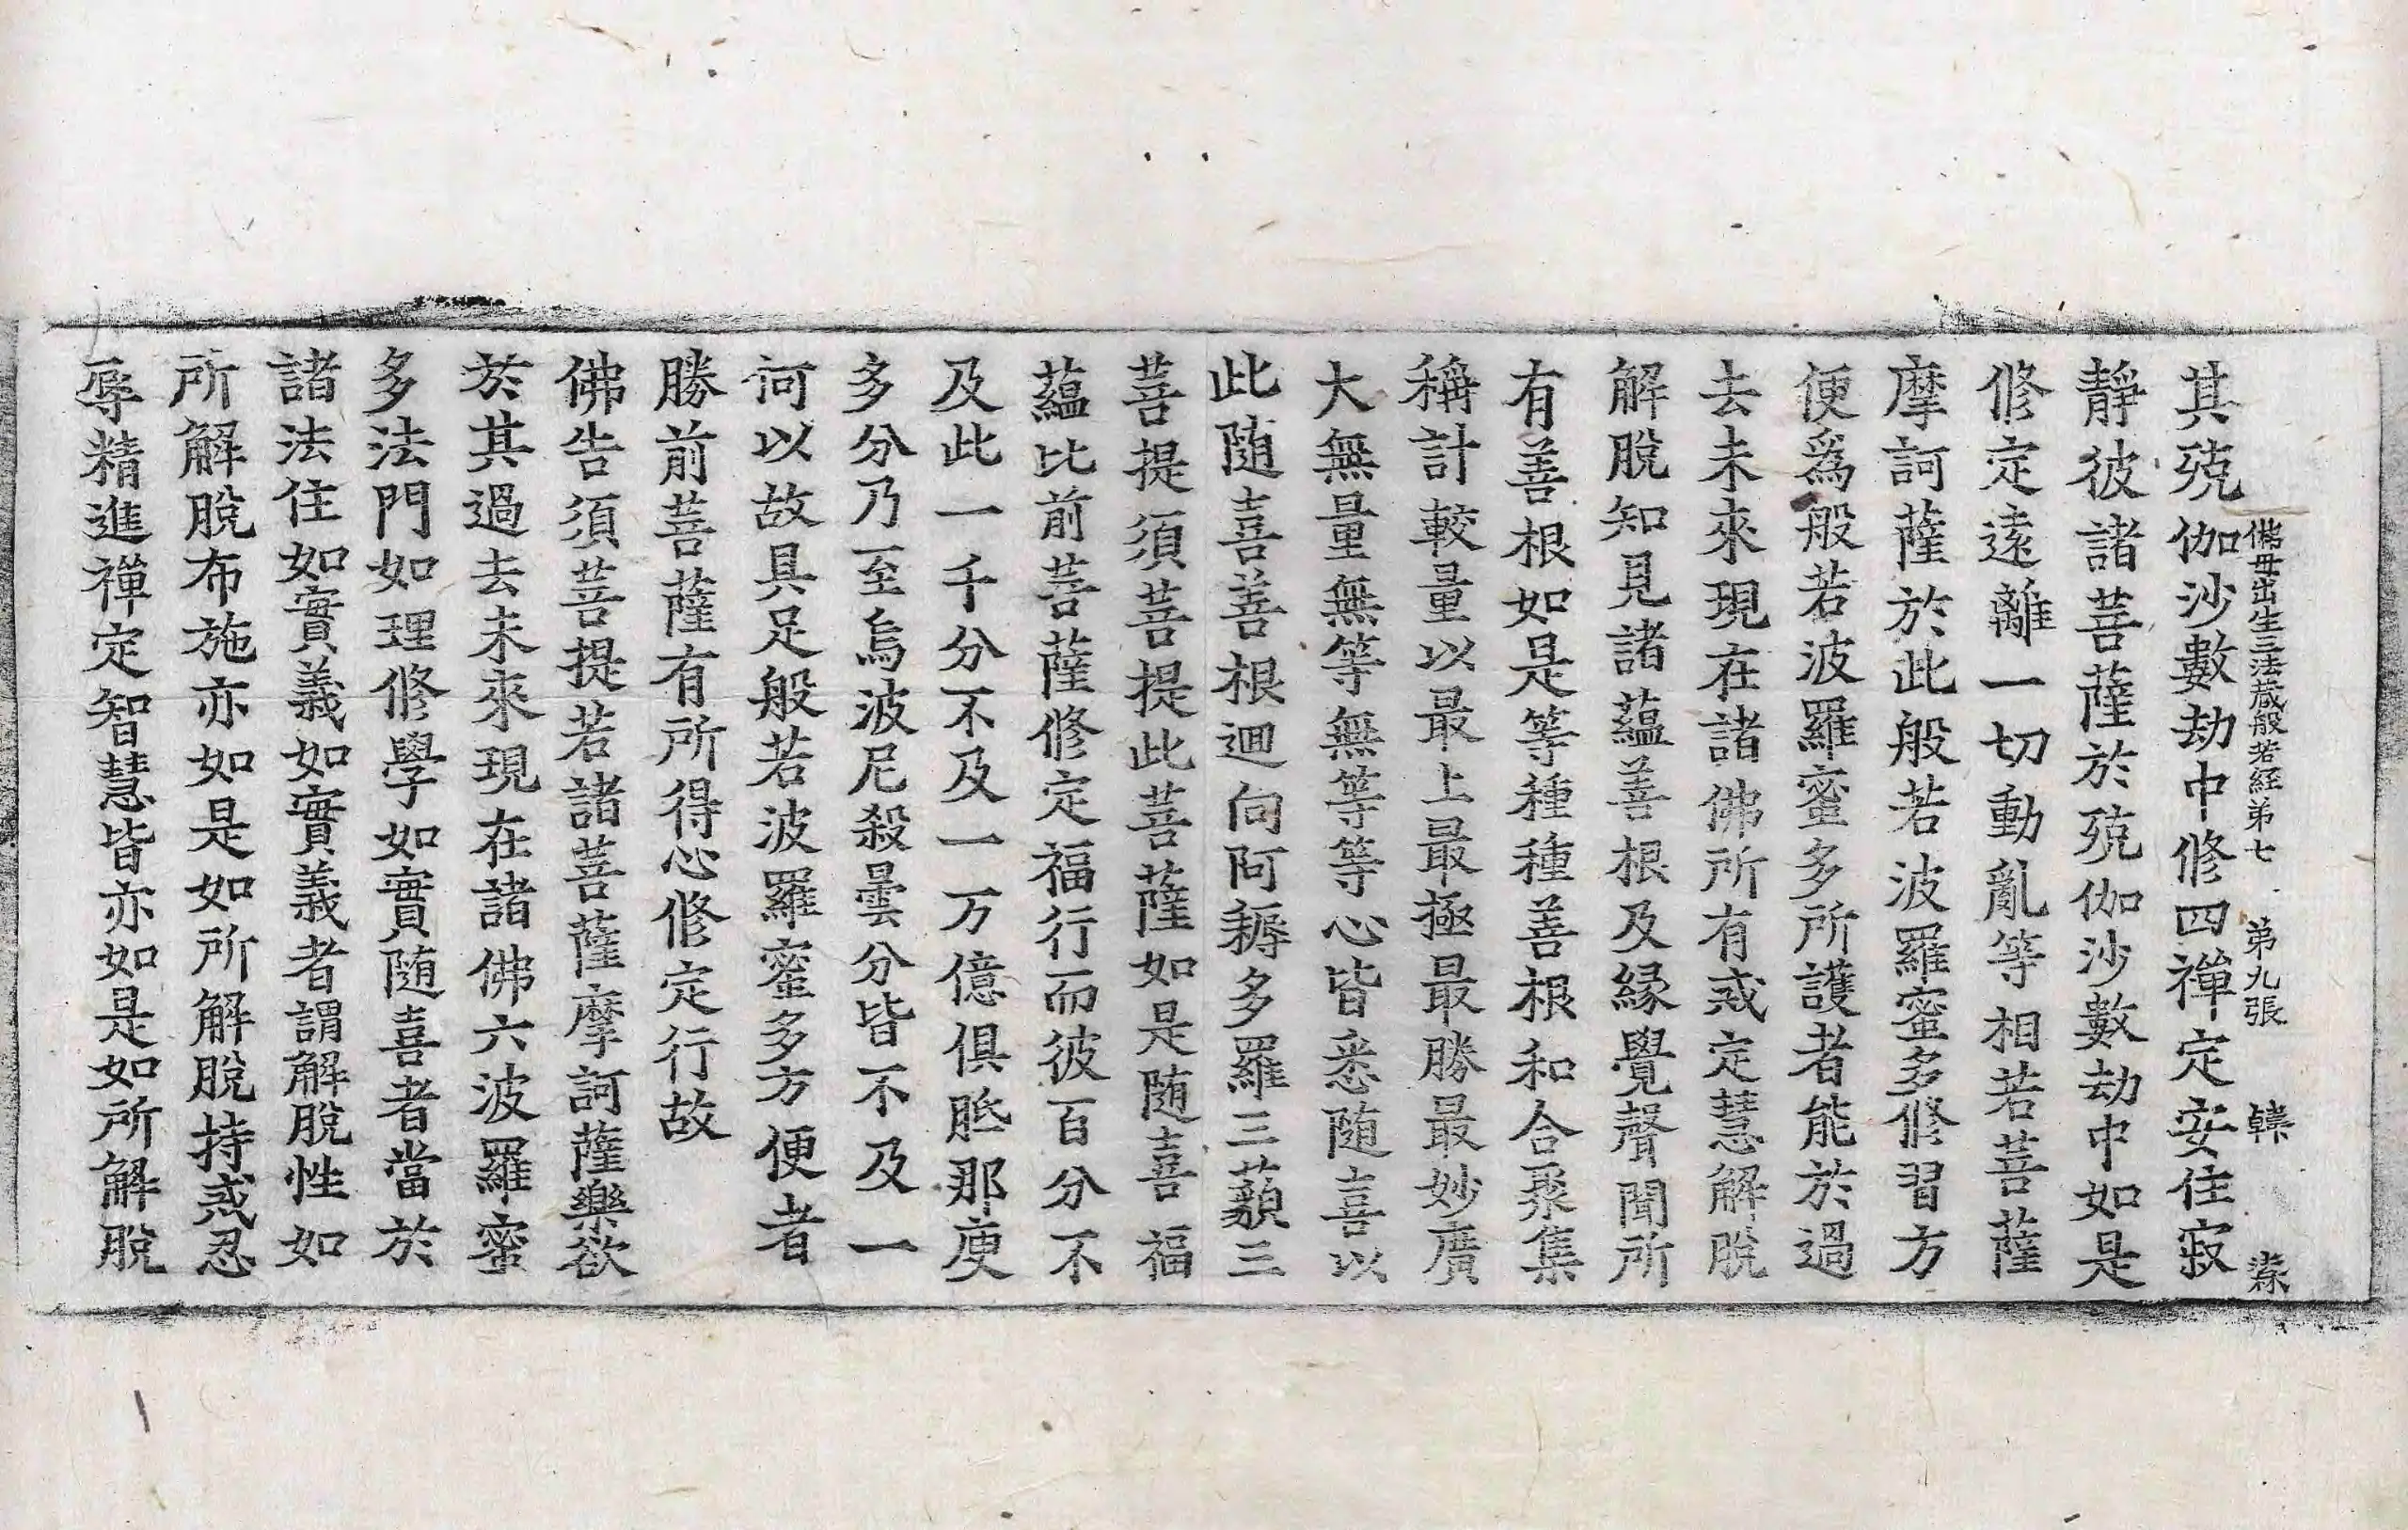 佛母出生三法蔵般若経第七 第九張 韓
其殑伽沙數劫中修四禪定安住寂
靜彼諸菩薩於殑伽沙數劫中如是
修定遠離一切動亂等相若菩薩
摩訶薩於此般若波羅蜜多修習方
便爲般若波羅蜜多所護者能於過
去未來現在諸佛所有戒定慧解脫
解脫知見諸蘊善根及縁覺聲聞所
有善根如是等種種善根和合聚集
稱計較量以最上最極最勝最妙廣
大無量無等無等等心皆悉随喜以
此随喜善根迴向阿耨多羅三藐三
菩提須菩提此菩薩如是随喜福
蘊比前菩薩修定福行而彼百分不
及此一千分不及一万億俱胝那庾
多分乃至烏波尼殺曇分皆不及一
何以故具足般若波羅蜜多方便者
勝前菩薩有所得心修定行故
佛告須菩提若諸菩薩摩訶薩樂欲
於其過去未來現在諸佛六波羅蜜
多法門如理修學如實随喜者當於
諸法住如實義如實義者謂解脫性如
所解脫布施亦如是如所解脫持戒忍
辱精進禪定智慧皆亦如是如所解脫